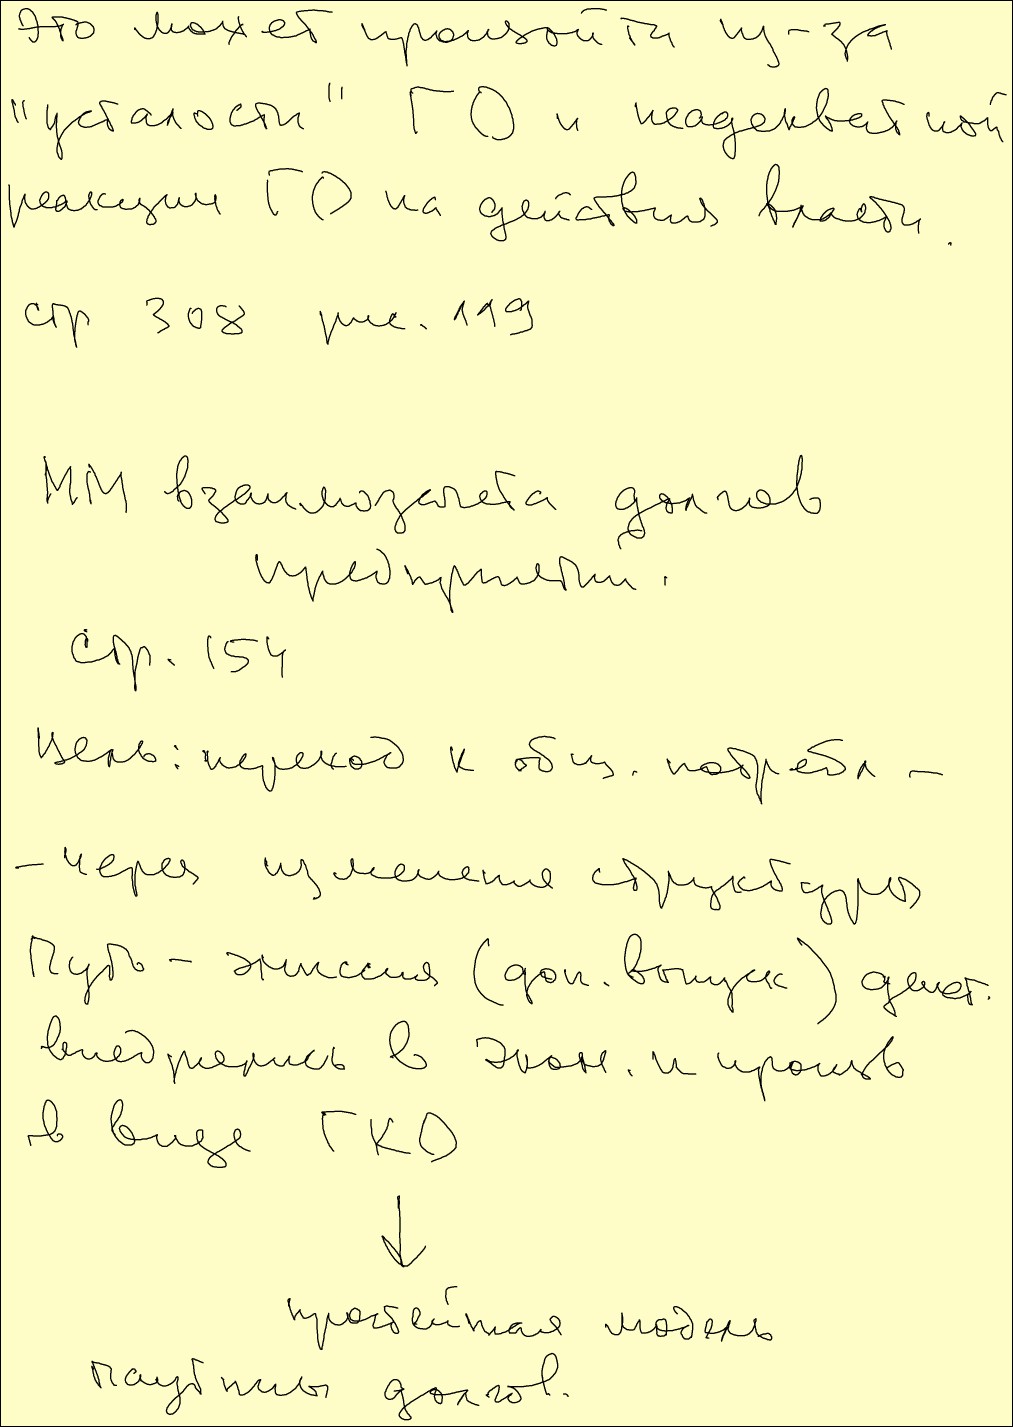 Это может произойти из-за
"усталости" ГО и неадекватной
реакции ГО на действия власти.
стр 308 рис. 119
ММ взаимозачета долгов
предприятий.
Стр. 154
Цель: переход к общ. потребл -
- через изменение структуры
Путь - эмиссия (доп. выпуск) денег.
внедрились в экон. и произв
в виде ГКО
↓
простейшая модель
паутины долгов.